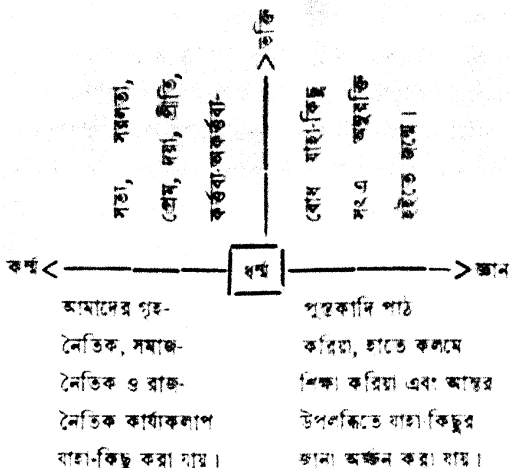 ভক্তি
সত্য, সরলতা,
প্রেম, দয়া, প্রীতি,
কর্ত্তব্য-অকর্ত্তব্য-
বোধ যাহা-কিছু
সৎএ অনুরক্তি
হইতে জন্মে।
কর্ম্ম
ধর্ম্ম
জ্ঞান
আমাদের গৃহ-
নৈতিক, সমাজ-
নৈতিক ও রাজ-
নৈতিক কার্য্যকলাপ
যাহা-কিছু করা যায়।
পুস্তকাদি পাঠ
করিয়া, হাতে কলমে
শিক্ষা করিয়া এবং আন্তর
উপলব্ধিতে যাহা কিছুর
জানা অর্জ্জন করা যায়।